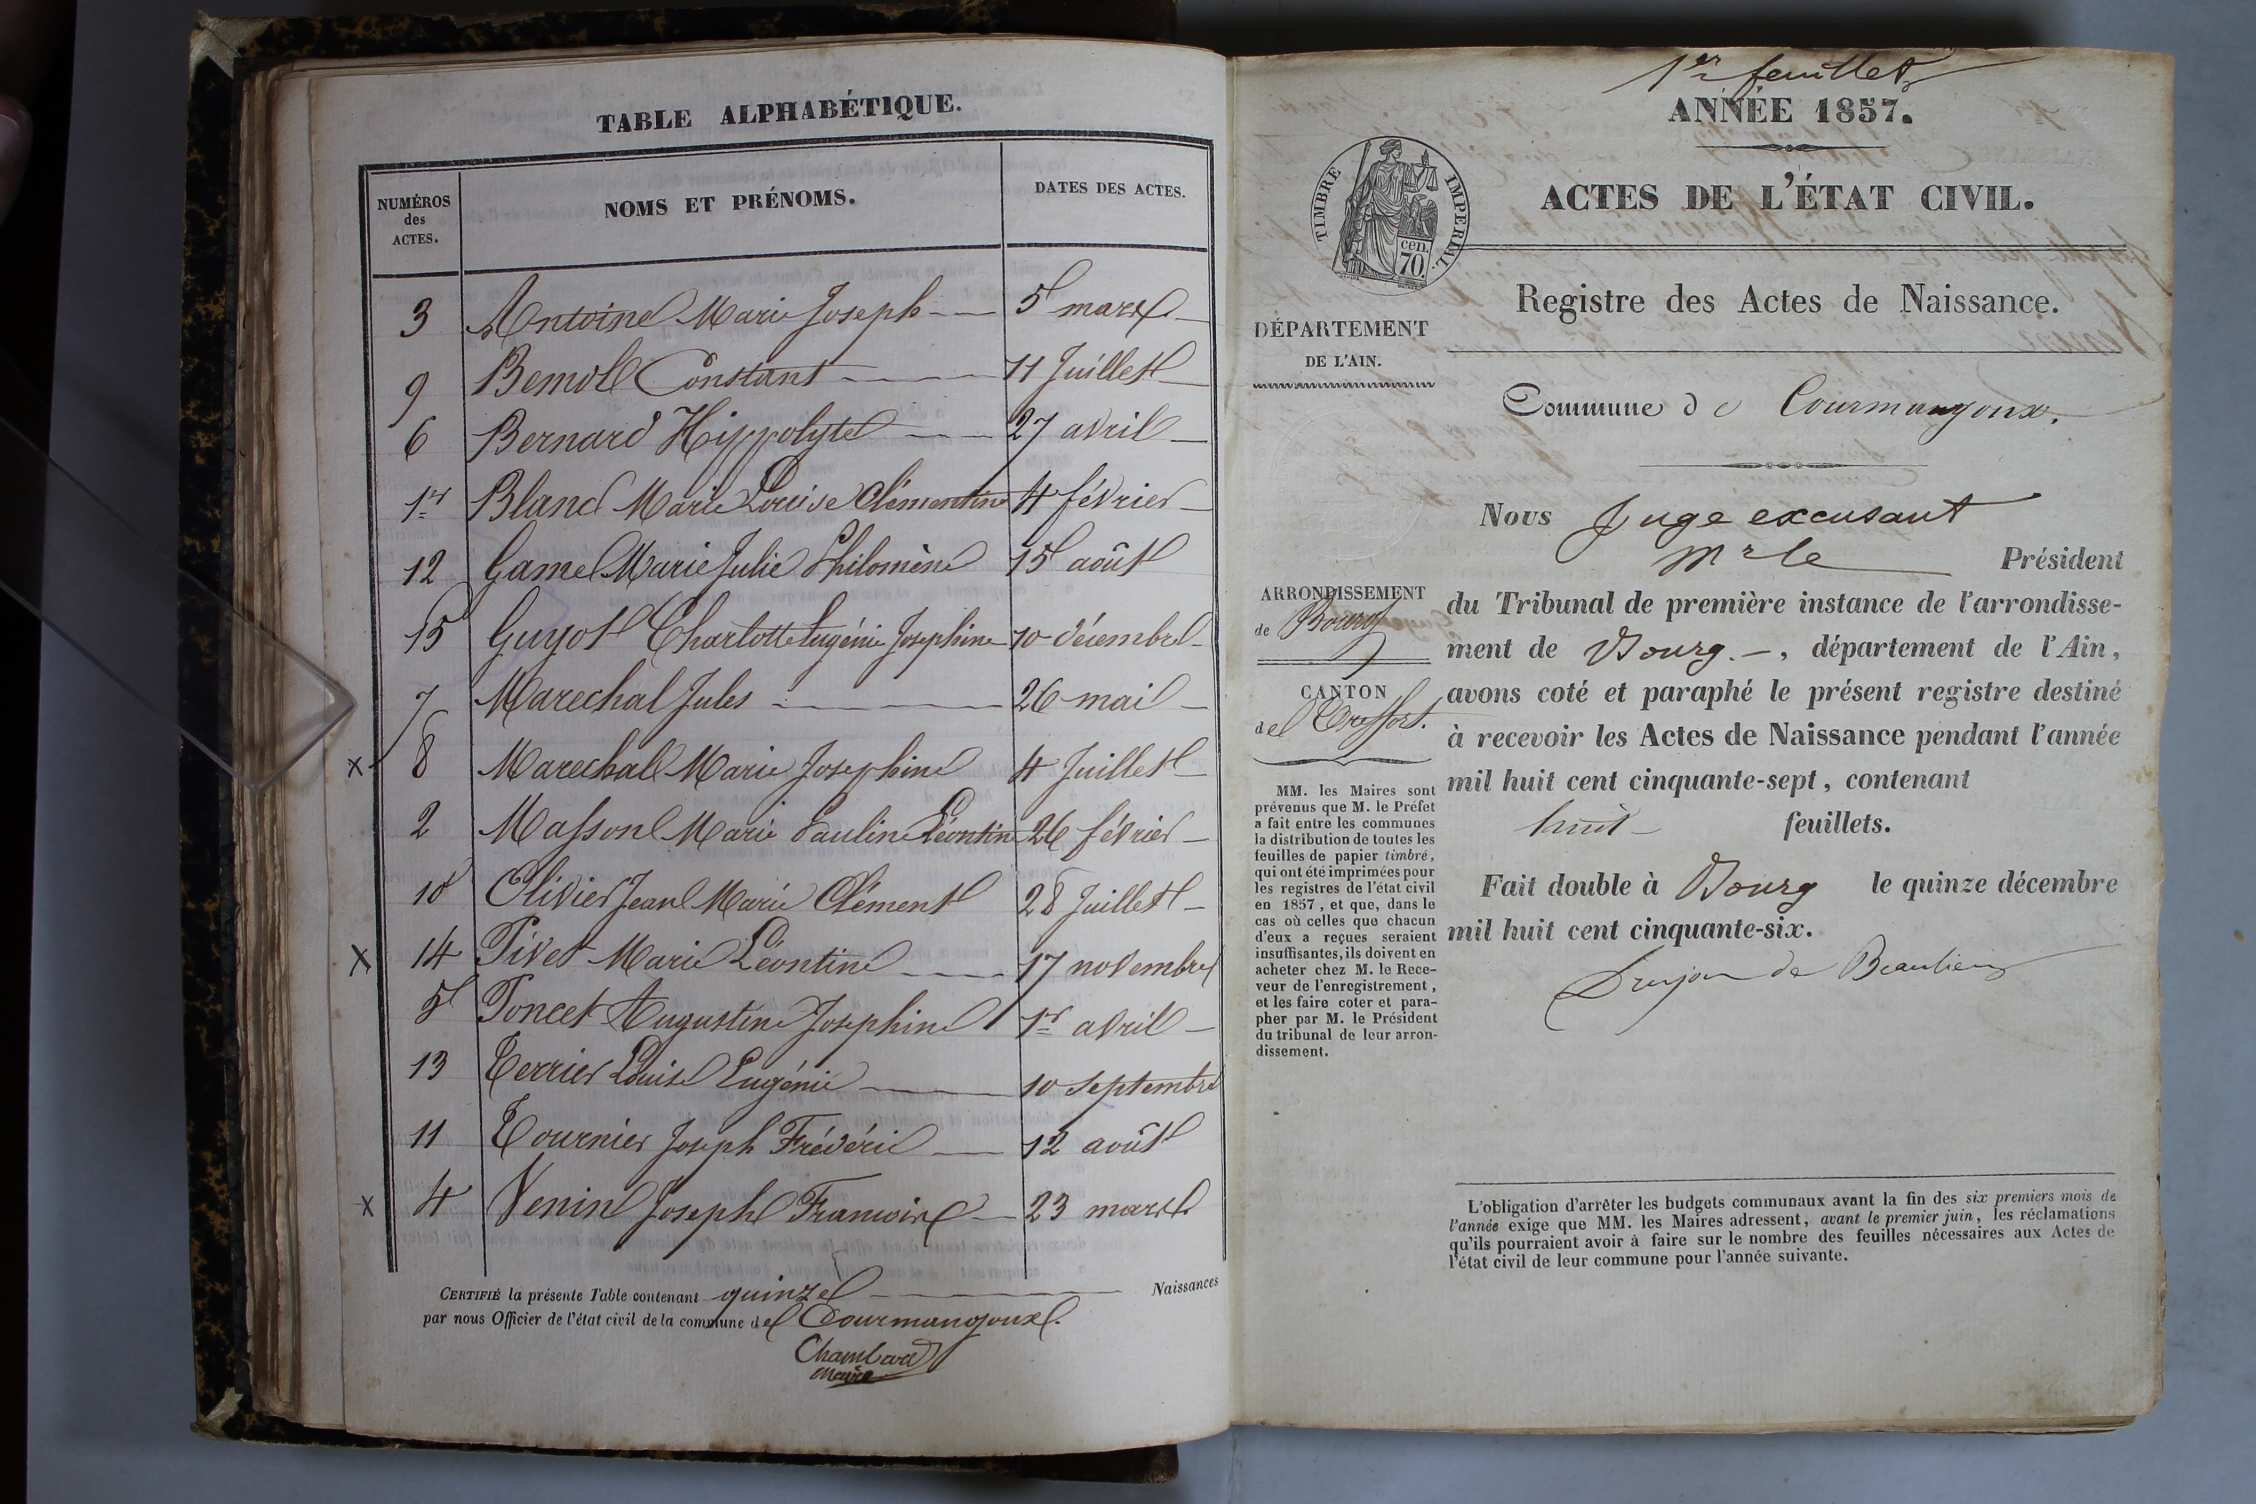 TABLE ALPHABÉTIQUE.
NUMÉROS
des
ACTES.
NOMS ET PRÉNOMS.
DATES DES ACTES.
3 Antoine Marie Joseph 5 mars
9 Bemol Constant 11 Juillet
6 Bernard Hippolyte 27 avril
1er Blanc Marie Louise Clémentine 4 février
12 Gamel Marie Julie Philomène 15 août
15 Guyot Charlotte Eugénie Josephine 10 décembre
7 Marechal Jules 26 mai
x 8 Marechal Marie Josephine 4 Juillet
2 Masson Marie Pauline Léontine 26 février
10 Olivier Jean Marie Clément 28 Juillet
x 14 Pivet Marie Léontine 17 novembre
5 Poncet Augustine Josephine 1er avril
13 Terrier Louise Eugénie 10 septembre
11 Tournier Joseph Frédéric 12 août
x 4 Venin Joseph François 23 mars
CERTIFIÉ la présente Table contenant quinze Naissances
par nous Officier de l'état civil de la commune de Courmangoux.
Chambard
Maire
1er feuillet
ANNÉE 1857.
TIMBRE IMPERIAL.
cen.
70.
ACTES DE L'ÉTAT CIVIL.
Registre des Actes de Naissance.
DÉPARTEMENT
DE L'AIN.
Commune de Courmangoux.
ARRONDISSEMENT
de Bourg
CANTON
de Treffort.
MM. les Maires sont
prévenus que M. le Préfet
a fait entre les communes
la distribution de toutes les
feuilles de papier timbré,
qui ont été imprimées pour
les registres de l'état civil
en 1857, et que, dans le
cas où celles que chacun
d'eux a reçues seraient
insuffisantes, ils doivent en
acheter chez M. le Rece-
veur de l'enregistrement,
et les faire coter et para-
pher par M. le Président
du tribunal de leur arron-
dissement.
Nous Juge excusant
Mr le Président
du Tribunal de première instance de l'arrondisse-
ment de Bourg. —, département de l'Ain,
avons coté et paraphé le présent registre destiné
à recevoir les Actes de Naissance pendant l'année
mil huit cent cinquante-sept, contenant
huit feuillets.
Fait double à Bourg le quinze décembre
mil huit cent cinquante-six.
Drujon de Beaulieu
L'obligation d'arrêter les budgets communaux avant la fin des six premiers mois de
l'année exige que MM. les Maires adressent, avant le premier juin, les réclamations
qu'ils pourraient avoir à faire sur le nombre des feuilles nécessaires aux Actes de
l'état civil de leur commune pour l'année suivante.